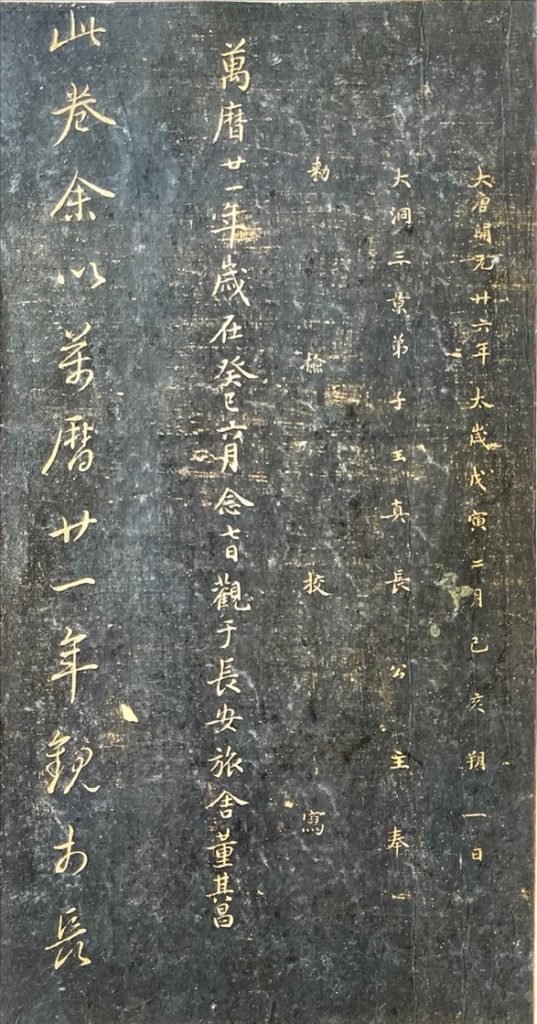 大唐開元廿六年太歲戊寅二月己亥朔一日
大洞三景弟子玉真長公主奉
勅檢挍寫
萬曆廿一年歲在癸巳六月念七日觀于長安旅舍董其昌
此卷余以萬曆廿一年觀於長